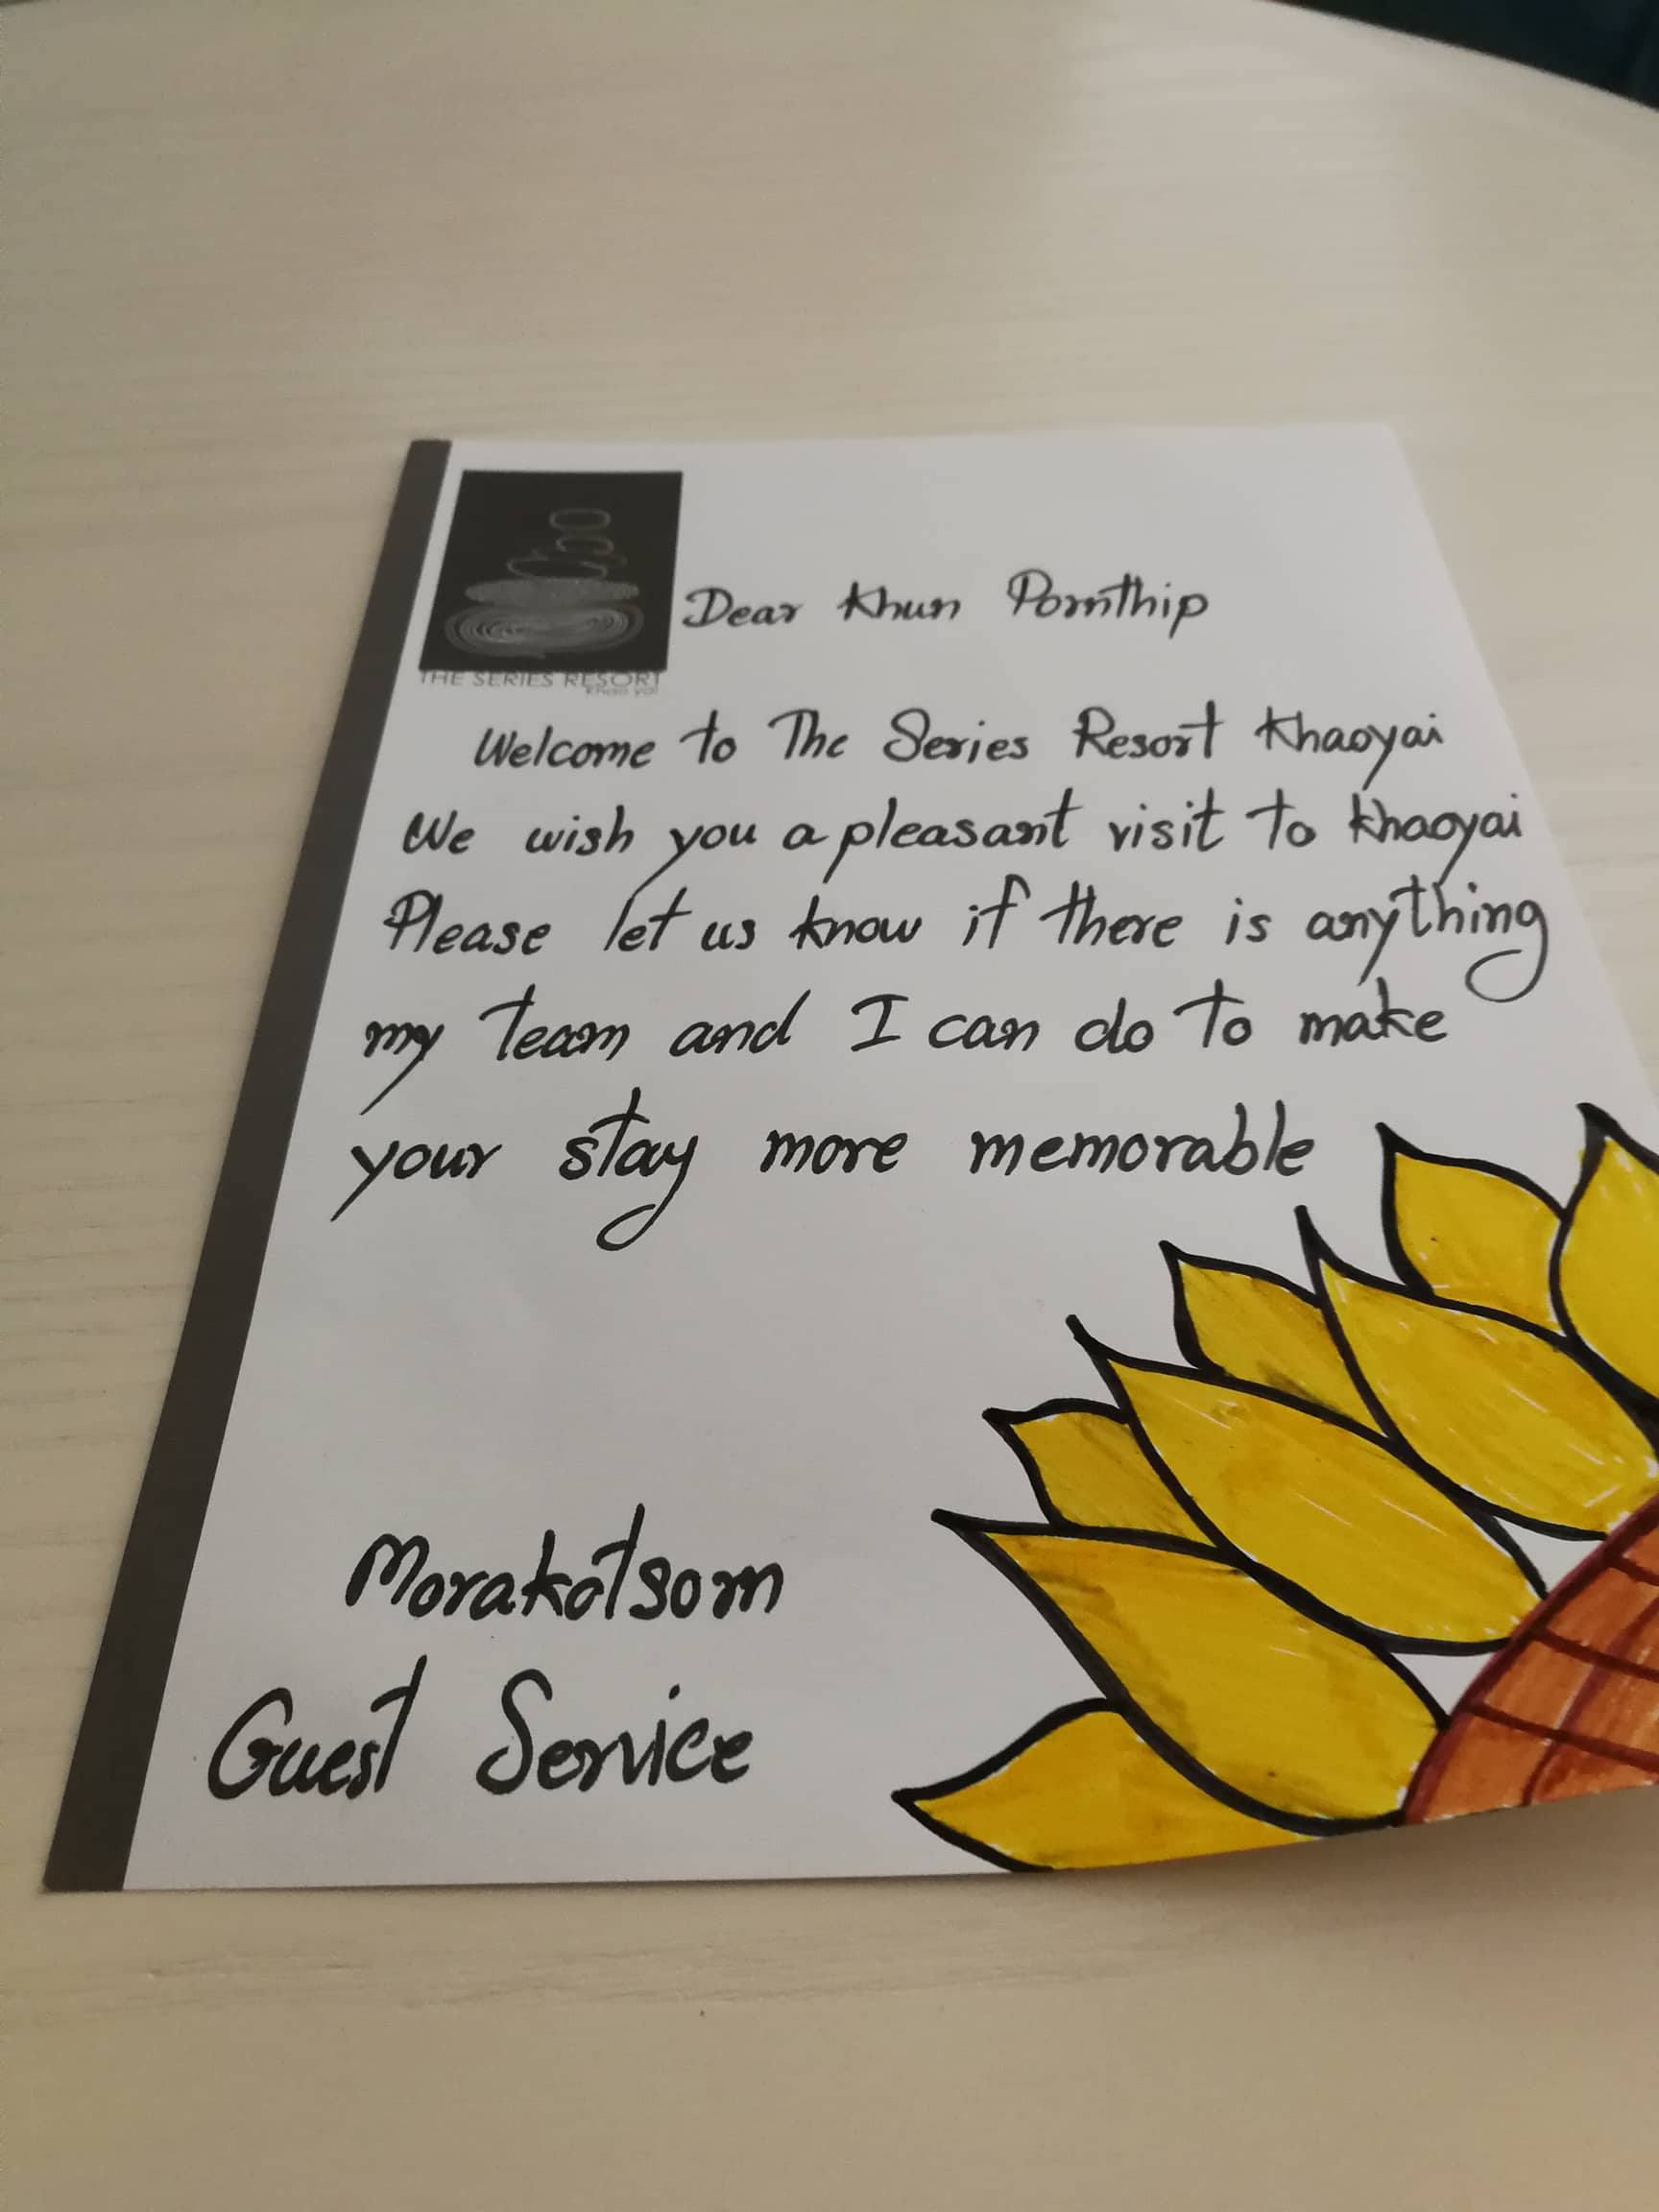 THE SERIES RESORT
khao yai
Dear Khun Pornthip
Welcome to The Series Resort Khaoyai
We wish you a pleasant visit to Khaoyai
Please let us know if there is anything
my team and I can do to make
your stay more memorable
Morakotsorn
Guest Service